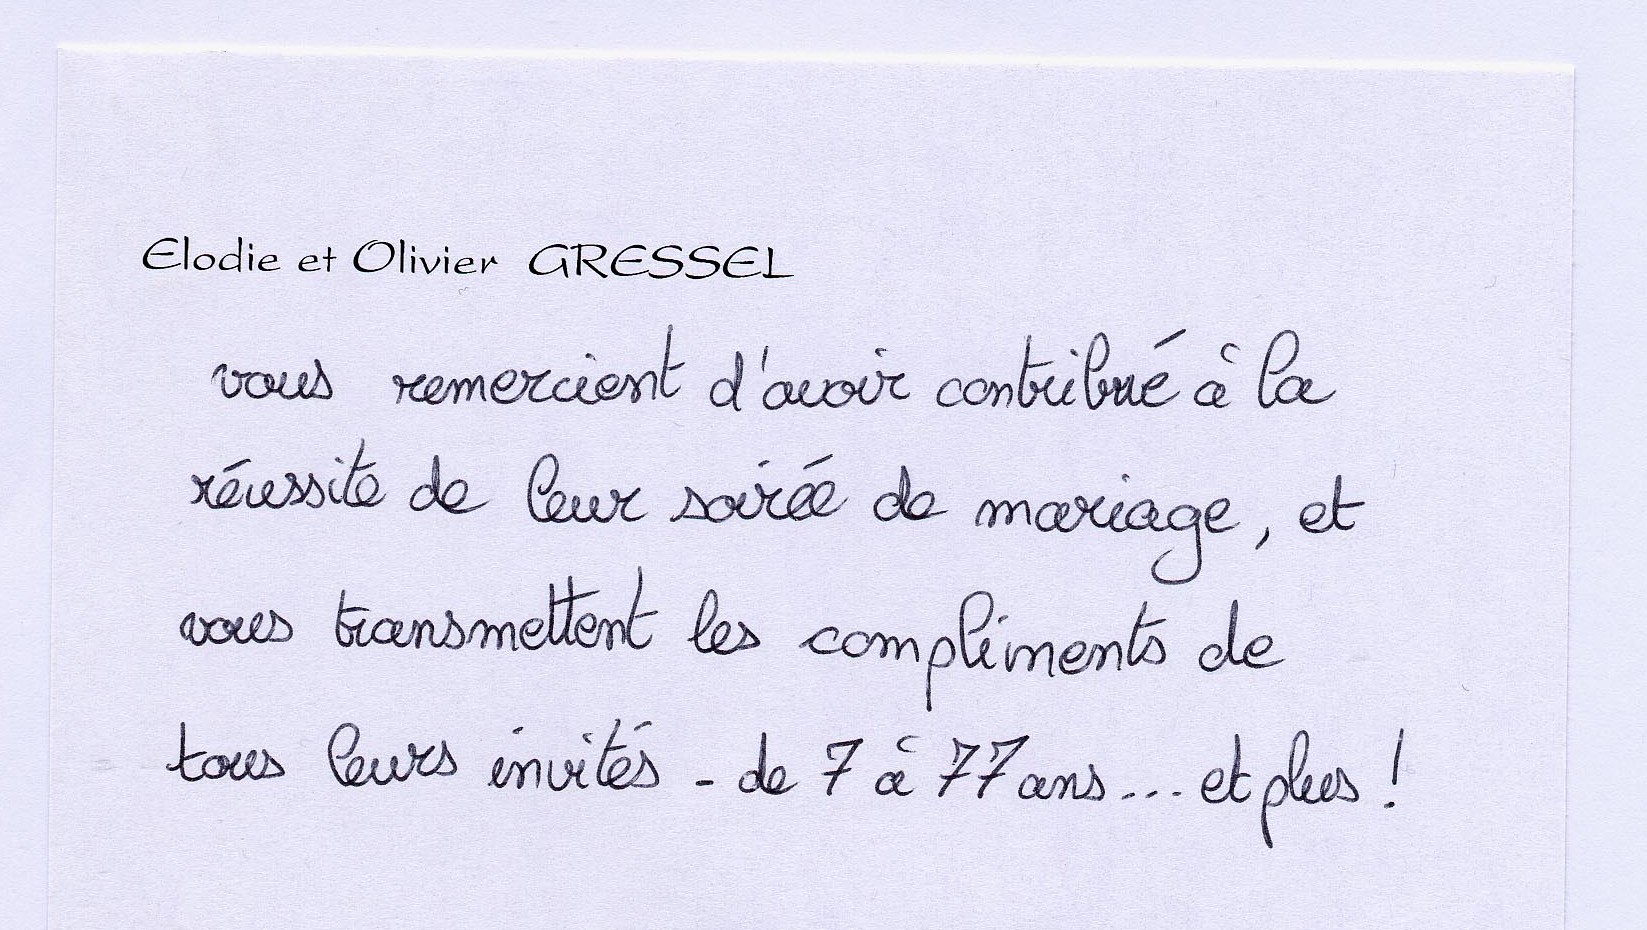 Elodie et Olivier GRESSEL
vous remercient d'avoir contribué à la
réussite de leur soirée de mariage, et
vous transmettent les compliments de
tous leurs invités - de 7 à 77 ans... et plus !